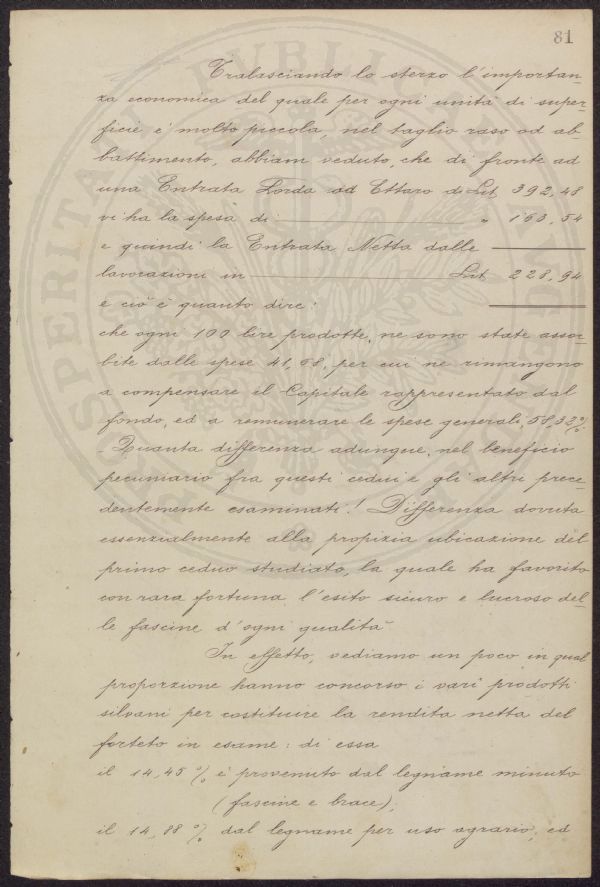 81
Tralasciando lo sterzo l'importan-
za economica del quale per ogni unità di super-
ficie è molto piccola, nel taglio raso od ab-
battimento, abbiam veduto, che di fronte ad
una Entrata Lorda ad Ettaro di Lit 392,48
vi ha la spesa di " 163,54
e quindi la Entrata Netta dalle
lavorazioni in Lit 228,94
e ciò è quanto dire:
che ogni 100 lire prodotte, ne sono state assor-
bite dalle spese 41,68, per cui ne rimangono
a compensare il Capitale rappresentato dal
fondo, ed a remunerare le spese generali 58,32 %.
- Quanta differenza adunque, nel beneficio
pecuniario fra questi cedui e gli altri prece-
dentemente esaminati! Differenza dovuta
essenzialmente alla propizia ubicazione del
primo ceduo studiato, la quale ha favorito
con rara fortuna l'esito sicuro e lucroso del-
le fascine d'ogni qualità
In effetto, vediamo un poco in qual
proporzione hanno concorso i varî prodotti
silvani per costituire la rendita netta del
forteto in esame: di essa
il 14,45 % è provenuto dal legname minuto
(fascine e brace);
il 14,88 % dal legname per uso agrario, ed
PVBLICAE
PROSPERITA